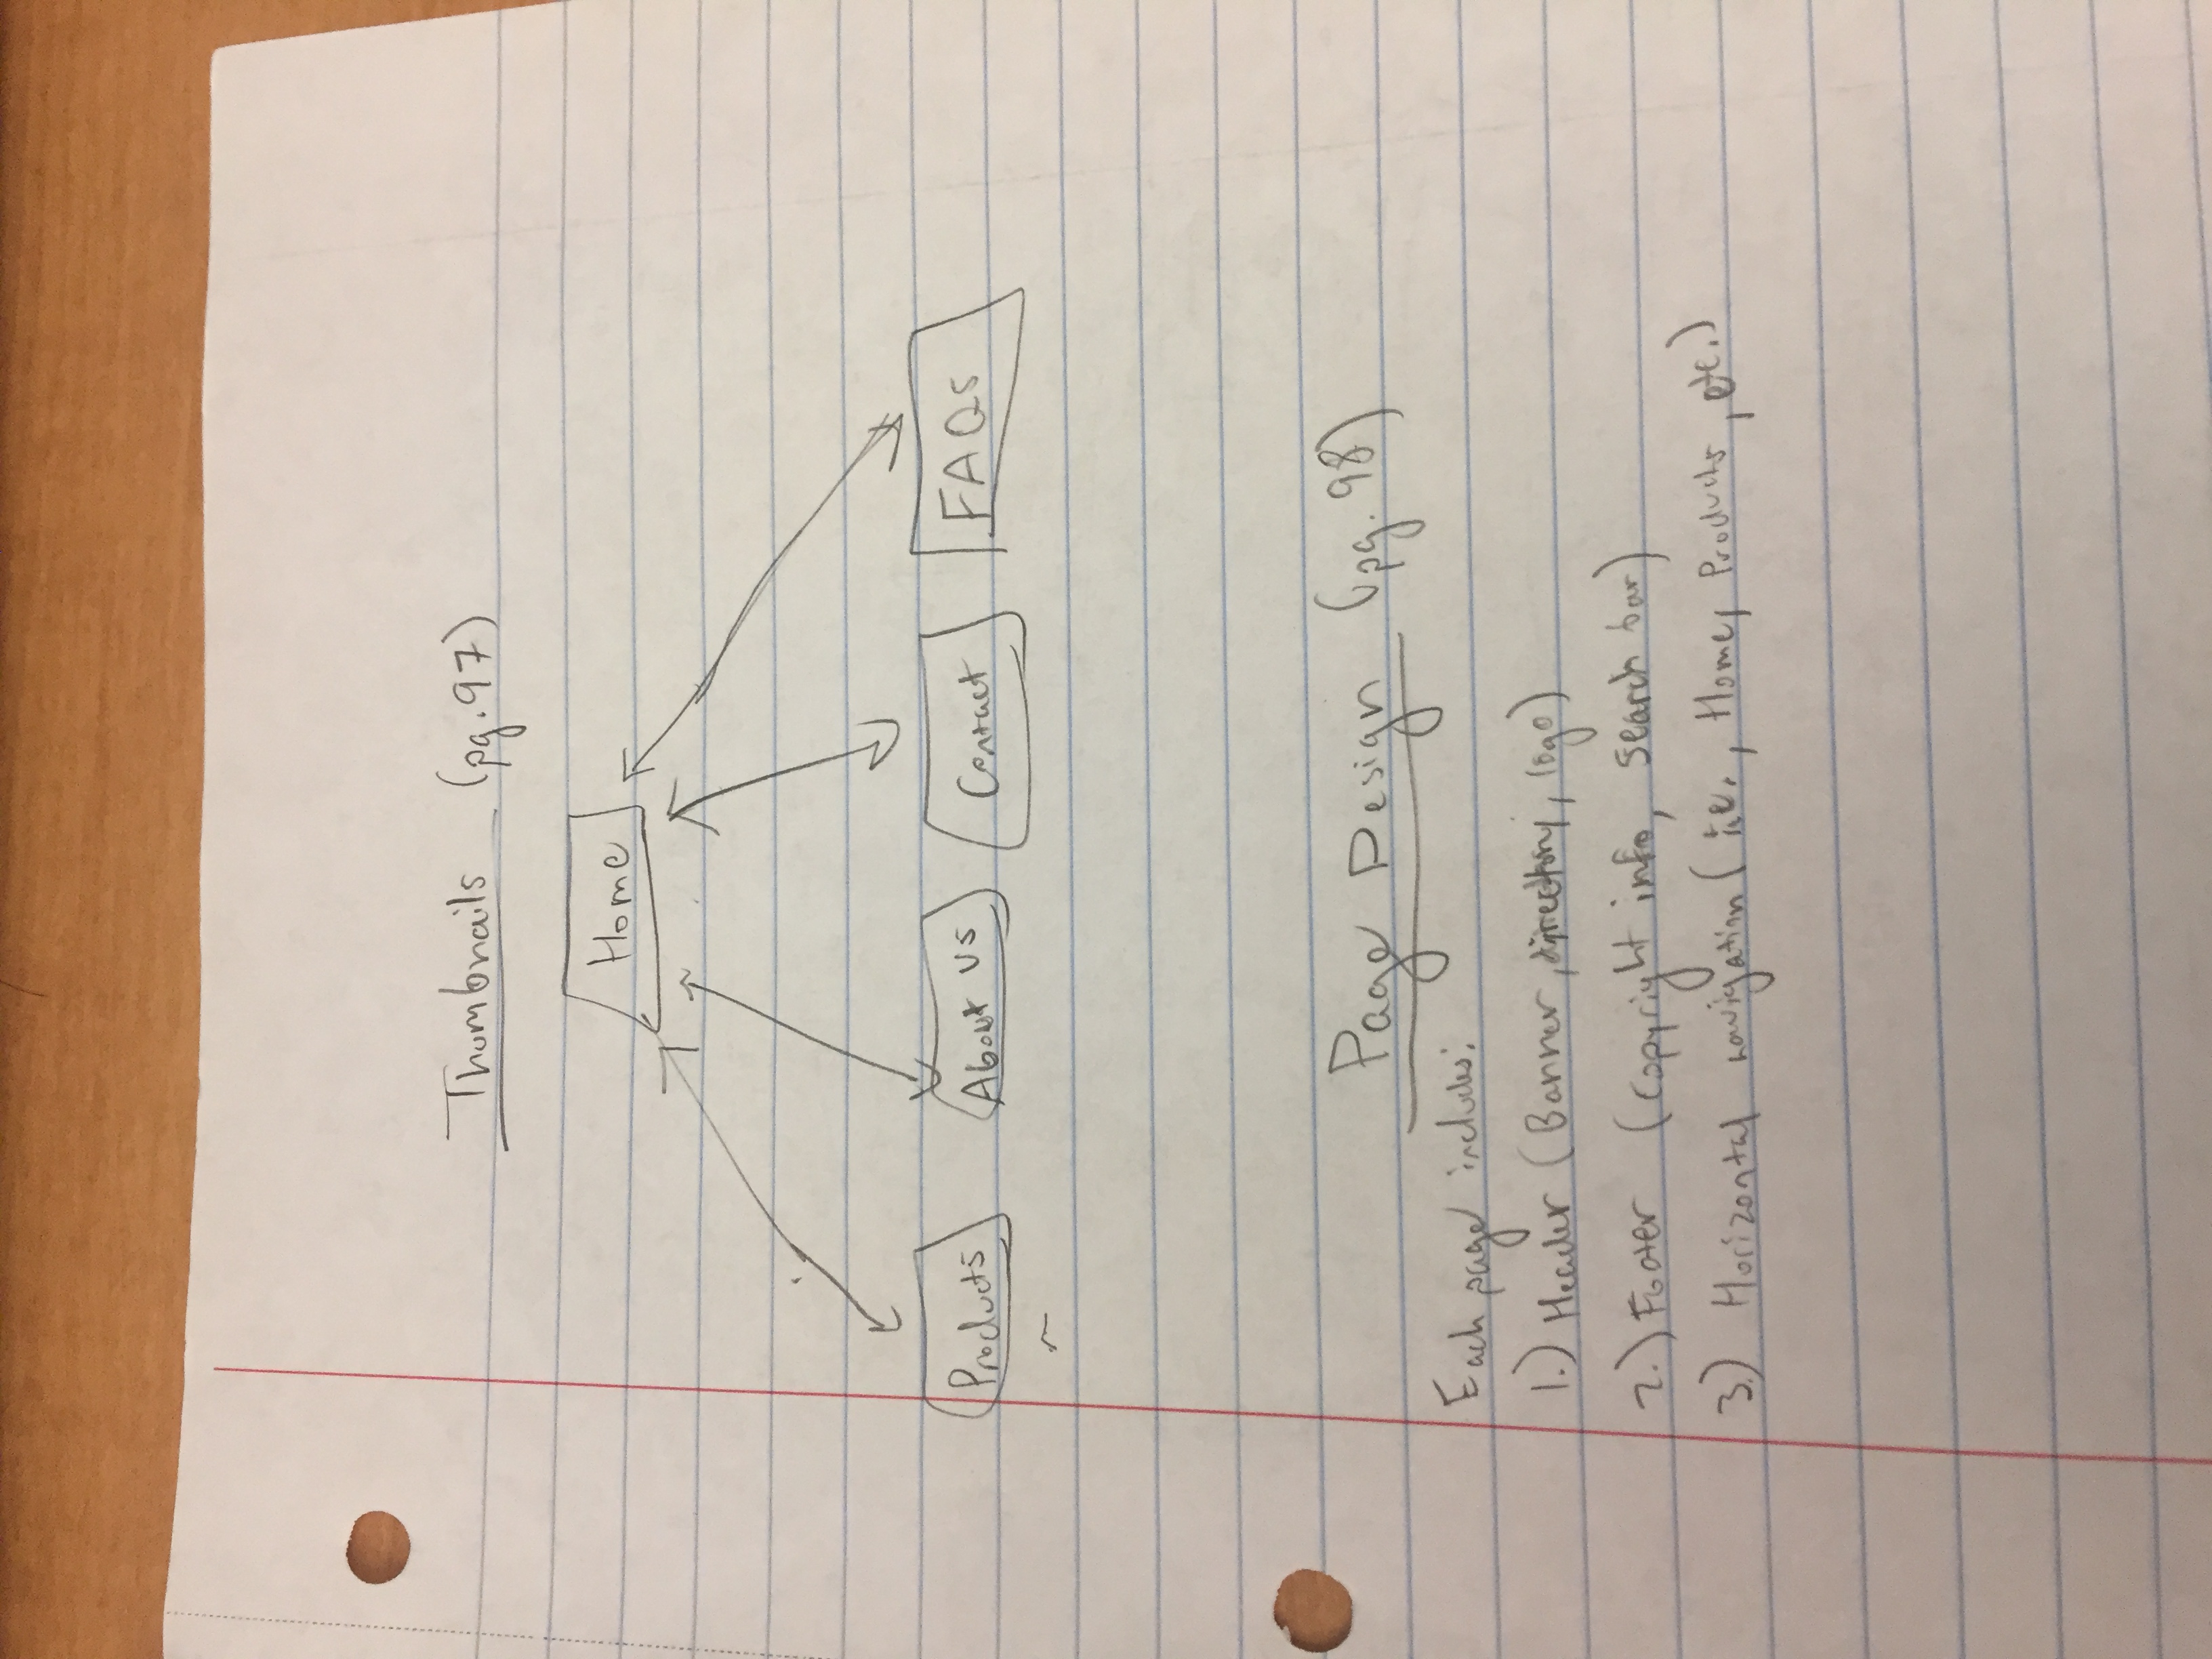 Thumbnails (pg. 97)
Home
Products About us Contact FAQs
Page Design (pg. 98)
Each page includes:
1.) Header (Banner, directory, logo)
2.) Footer (copyright info, search bar)
3.) Horizontal navigation (i.e., Home, Products, etc.)